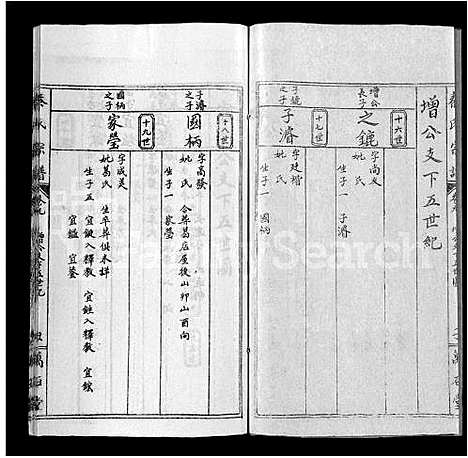 增公支下五世紀
十六世
增公
長子
之鑣
字尚友
妣氏
生子一 子濬
十七世
之鑣
之子
子濬
字廷楷
妣氏
生子一 國柄
十八世
子濬
之子
國柄
字高發
妣氏 合葬葛店屋後山卯山酉向
生子一 家瑩
十九世
國柄
之子
家瑩
字成美
妣葛氏 生卒葬俱未詳
生子五 宜 入釋教 宜 入釋教 宜鋐
宜鎰 宜鋆
氏宗譜
萬石堂
FamilySearch